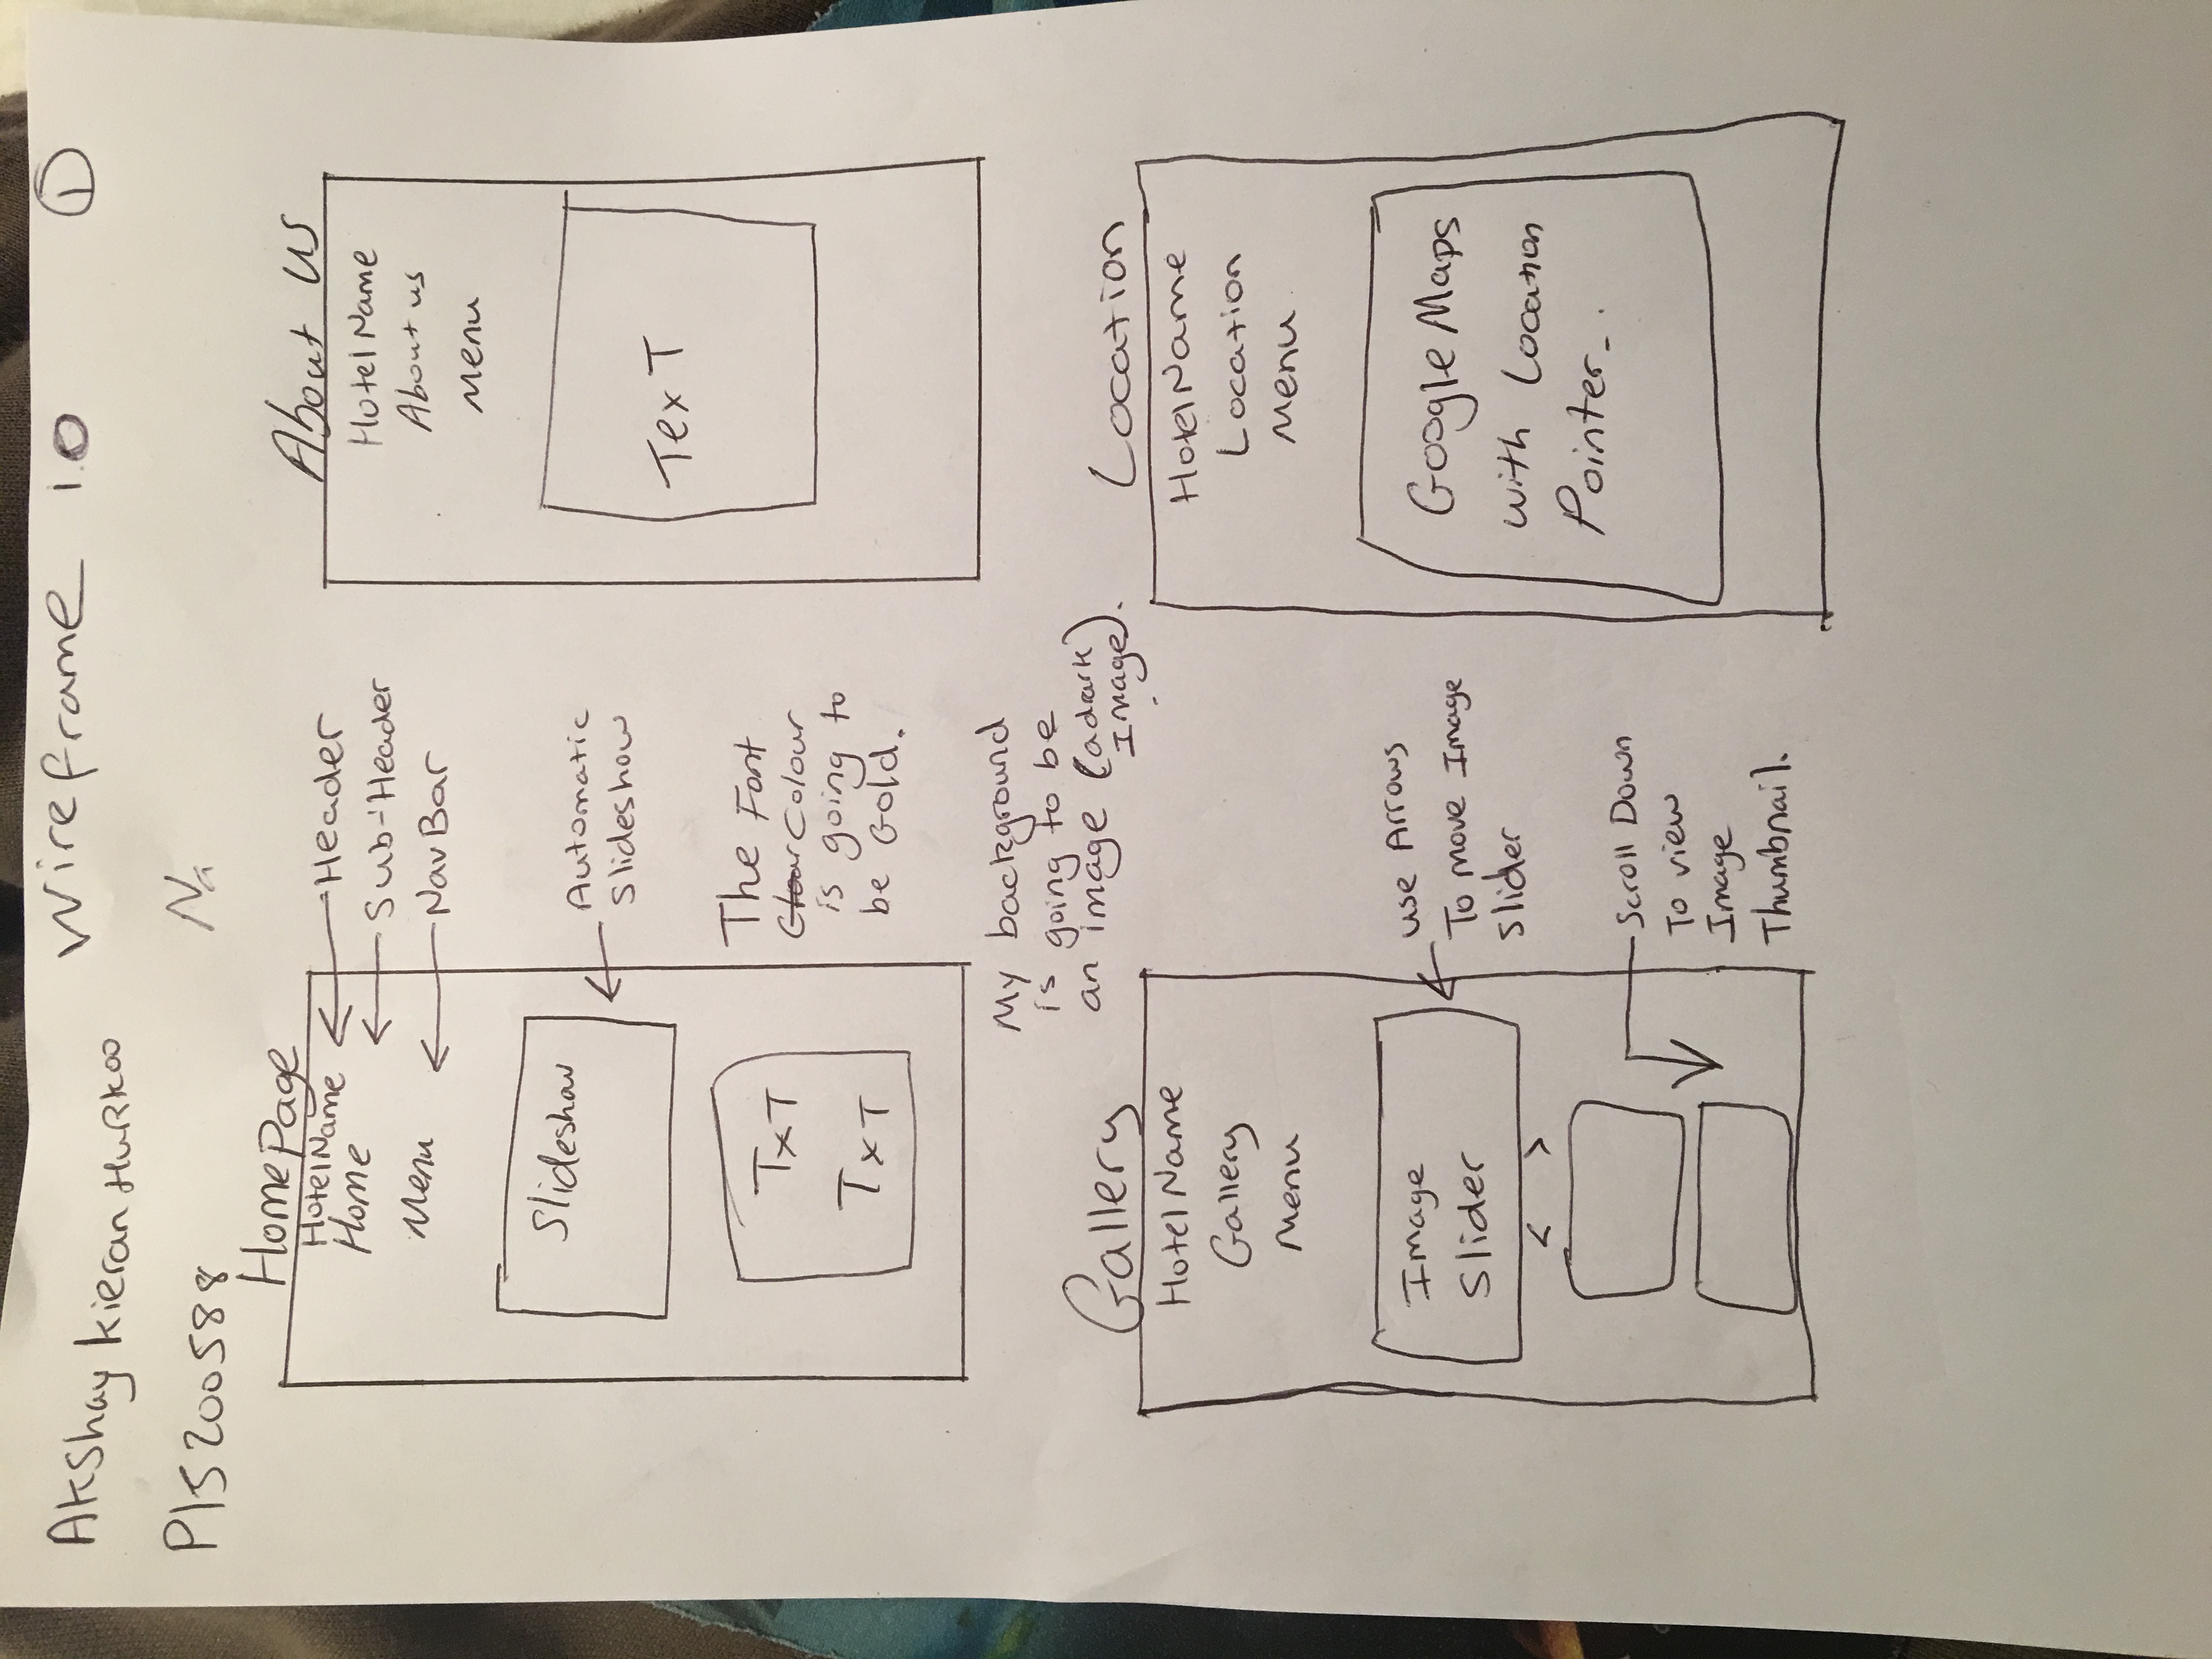 Akshay Kieran Hurkoo
Wireframe 1.0
1
P15200588
Na
HomePage
HotelName
Home
Menu
Header
Sub-Header
NavBar
Slideshow
Automatic
Slideshow
TxT
TxT
The Font
Colour
is going to
be Gold.
About us
Hotel Name
About us
Menu
Text
My background
is going to be
an image (a dark
Image).
Gallery
Hotel Name
Gallery
Menu
Image
Slider
< >
use Arrows
To move Image
Slider
Scroll Down
To view
Image
Thumbnail.
Location
Hotel Name
Location
Menu
Google Maps
with Location
Pointer.